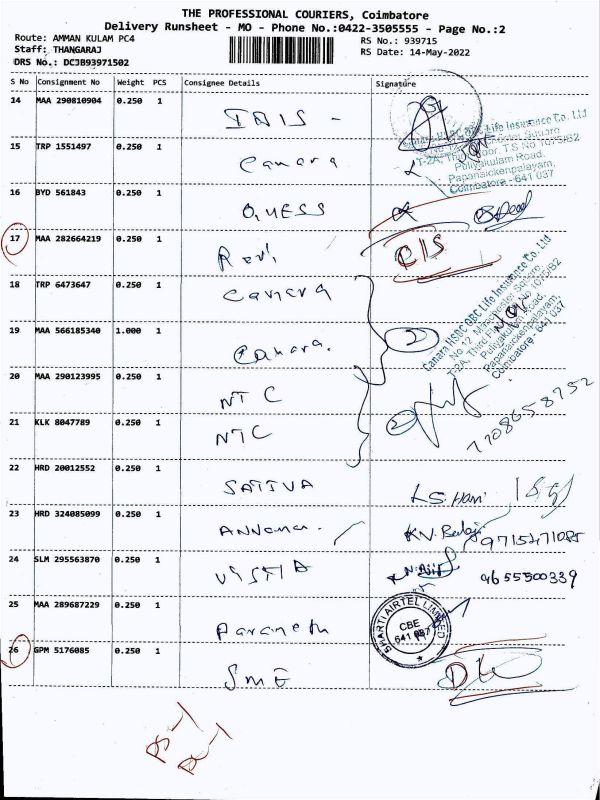 THE PROFESSIONAL COURIERS, Coimbatore
Delivery Runsheet - MO - Phone No.:0422-3505555 - Page No.:2
Route: AMMAN KULAM PC4 RS No.: 939715
Staff: THANGARAJ RS Date: 14-May-2022
DRS No.: DC3B93971502
S No Consignment No Weight PCS Consignee Details Signature
14 MAA 290810904 0.250 1 IRIS -
15 TRP 1551497 0.250 1 Canara
Canara HSBC OBC Life Insurance Co. Ltd
T-2A, Third Floor, T.S No 1075/B2
Puliyakulam Road,
Papanaickenpalayam,
Coimbatore - 641 037
16 BYD 561843 0.250 1 QUESS
17 MAA 282664219 0.250 1 Ravi
18 TRP 6473647 0.250 1 Canara
19 MAA 566185340 1.000 1 Canara. 2
Canara HSBC OBC Life Insurance Co. Ltd
No 12, Manchester Square
T-2A, Third Floor, T.S No 1075/B2
Puliyakulam Road,
Papanaickenpalayam,
Coimbatore - 641 037
20 MAA 290123995 0.250 1 NTC
21 KLK 8047789 0.250 1 NTC 2 7708658732
22 HRD 20012552 0.250 1 SATTVA L.S. Hari
23 HRD 324085099 0.250 1 KV. Balaji 9715471085
24 SLM 295563870 0.250 1 9655500339
25 MAA 289687229 0.250 1
BHARTI AIRTEL LIMITED
CBE
641 037
26 GPM 5176085 0.250 1 SME DL